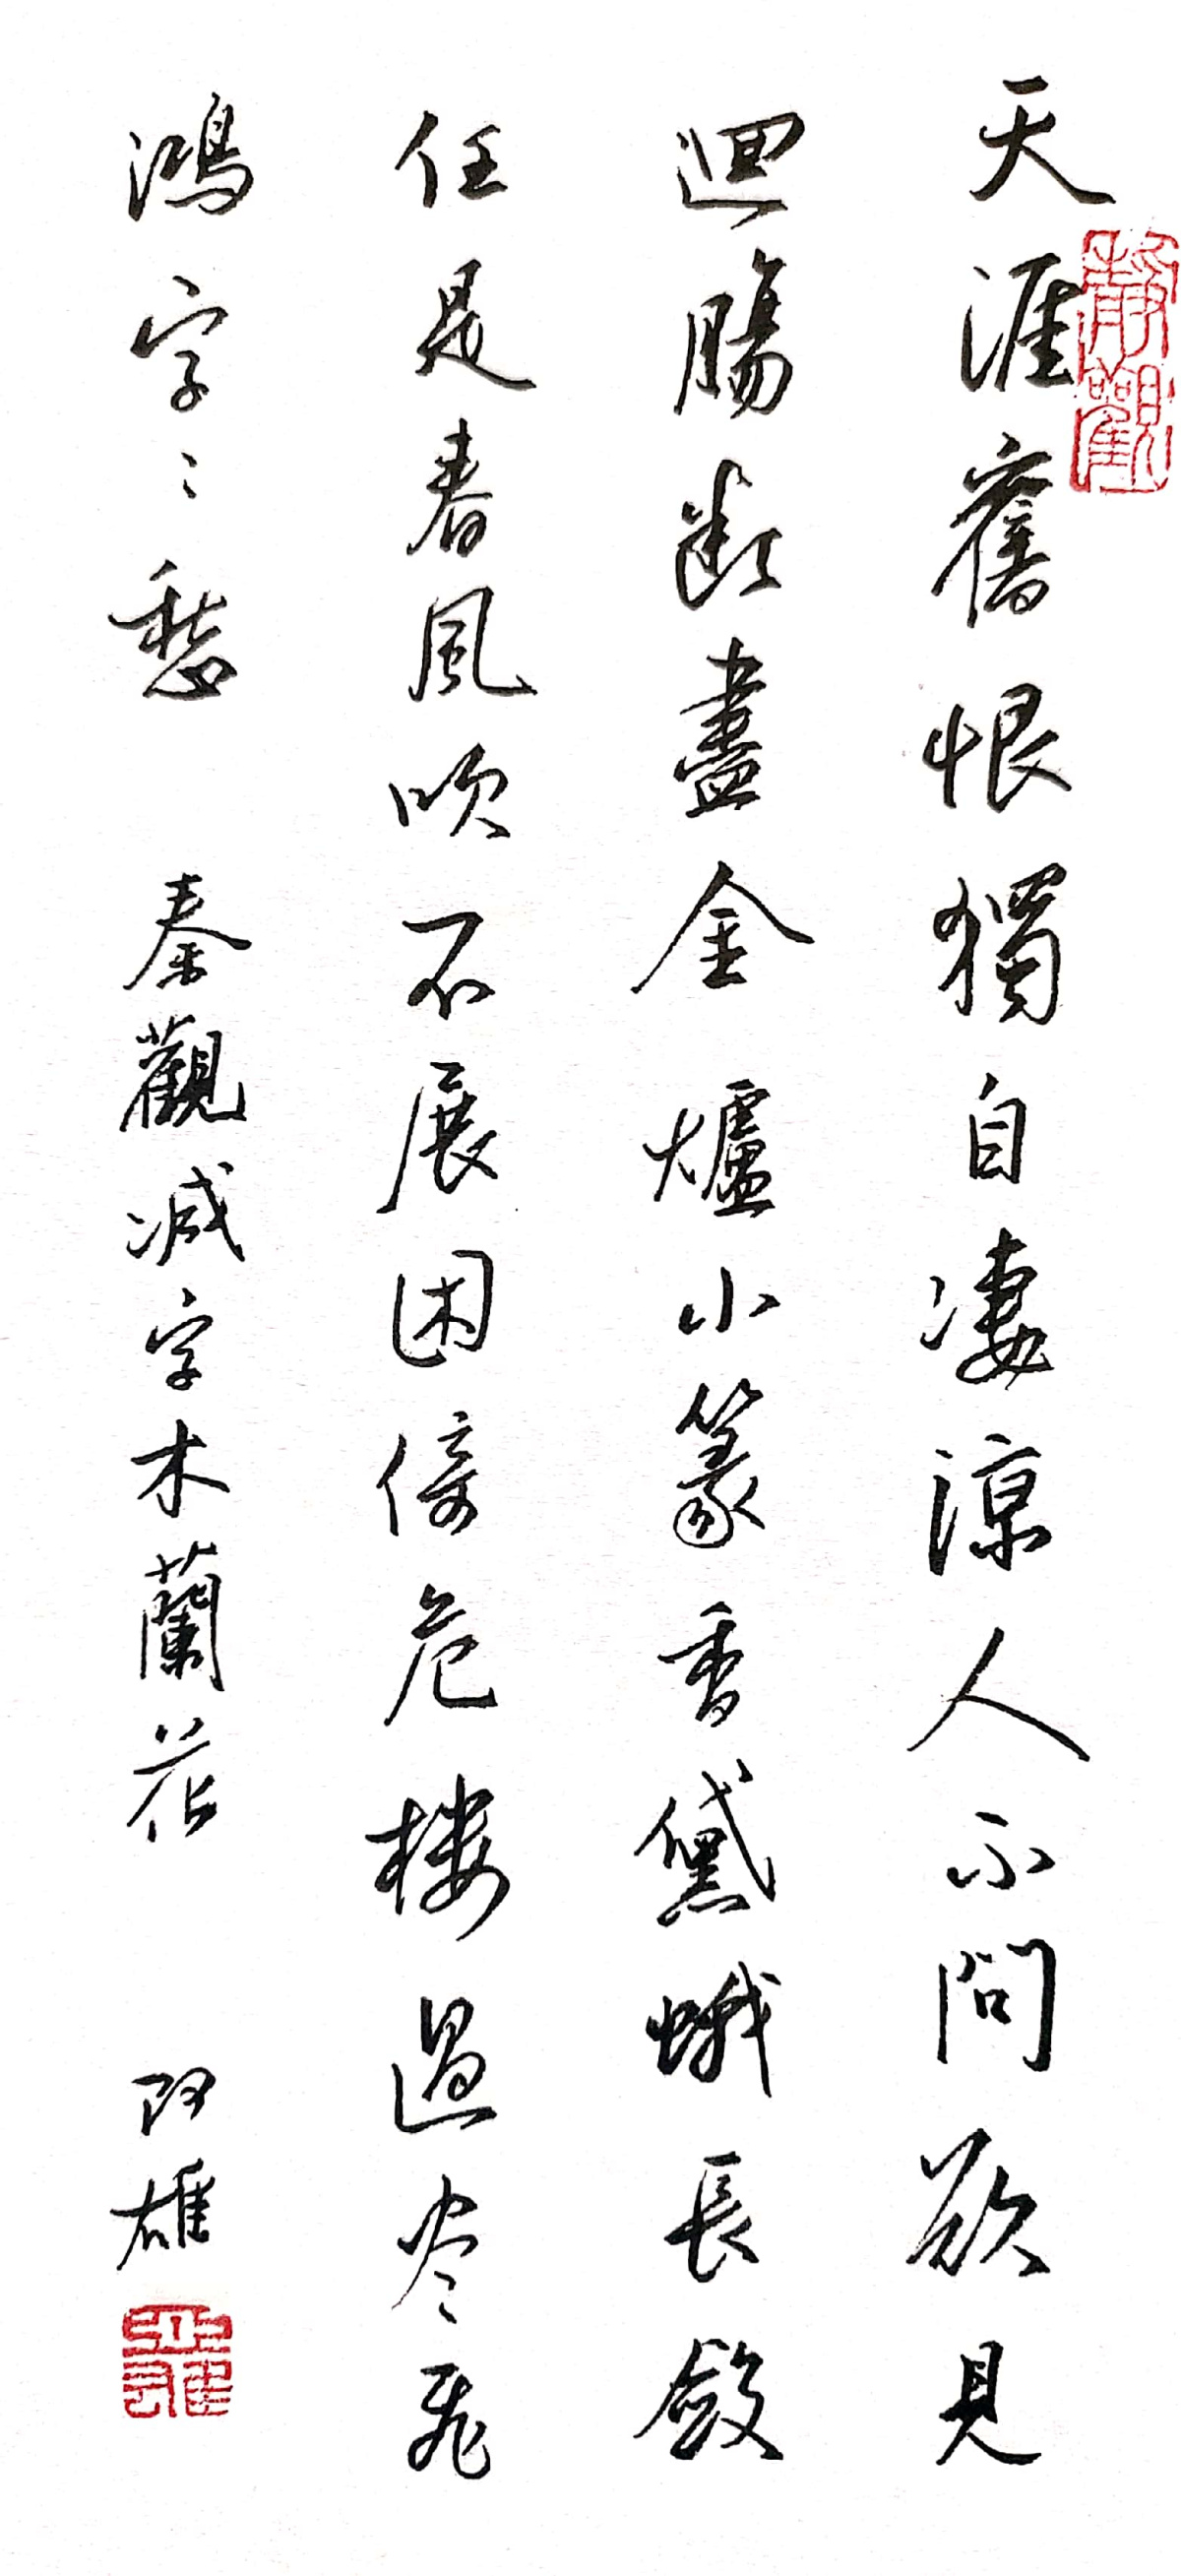 天涯舊恨獨自淒涼人不問欲見
迴腸斷盡金爐小篆香黛蛾長斂
任是春風吹不展困倚危樓過尽飛
鴻字〻愁 秦觀减字木蘭花 阿雄
靜觀